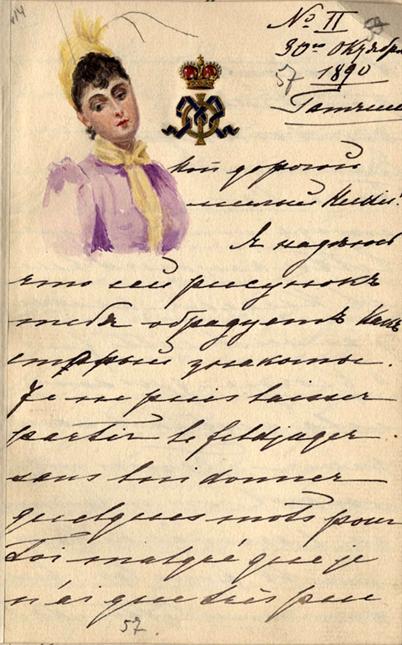 № II
30го Октября
57 1890
Гатчина
мой дорогой
милый Ники!
Я надѣюсь
что сей рисунокъ
тебя обрадуетъ какъ
старый знакомый.
Je ne puis laisser
partir le feldjäger
sans lui donner
quelques mots pour
Toi malgré que je
n'ai que très peu
57.